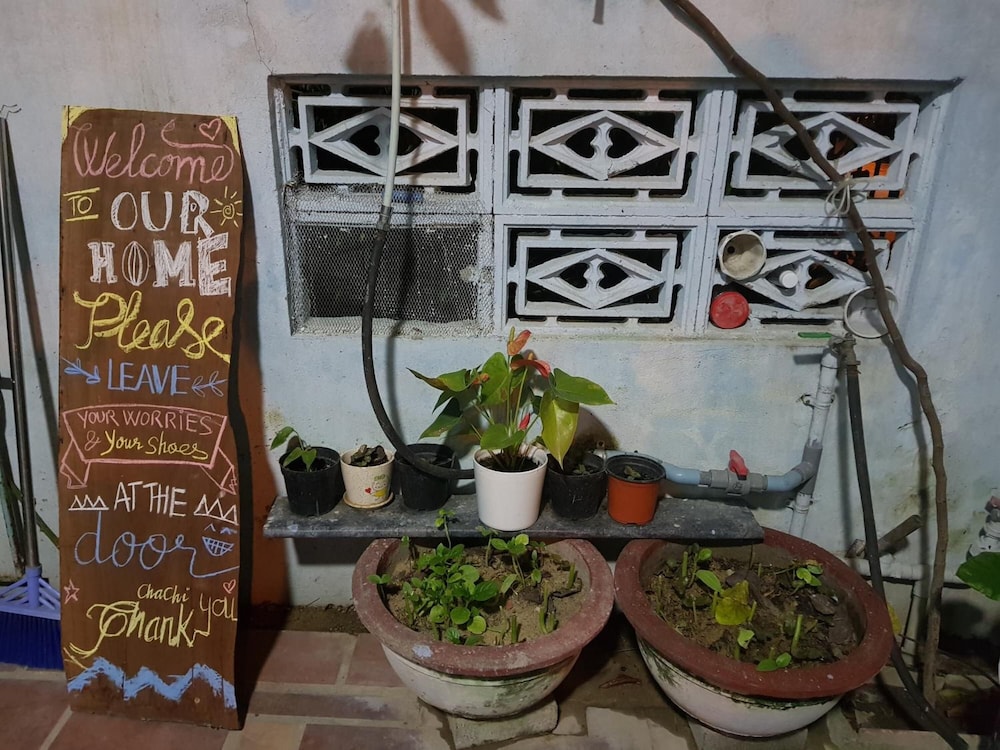 Welcome
TO OUR
HOME
Please
LEAVE
YOUR WORRIES
& Your Shoes
AT THE
door
ChaChi
Thank you